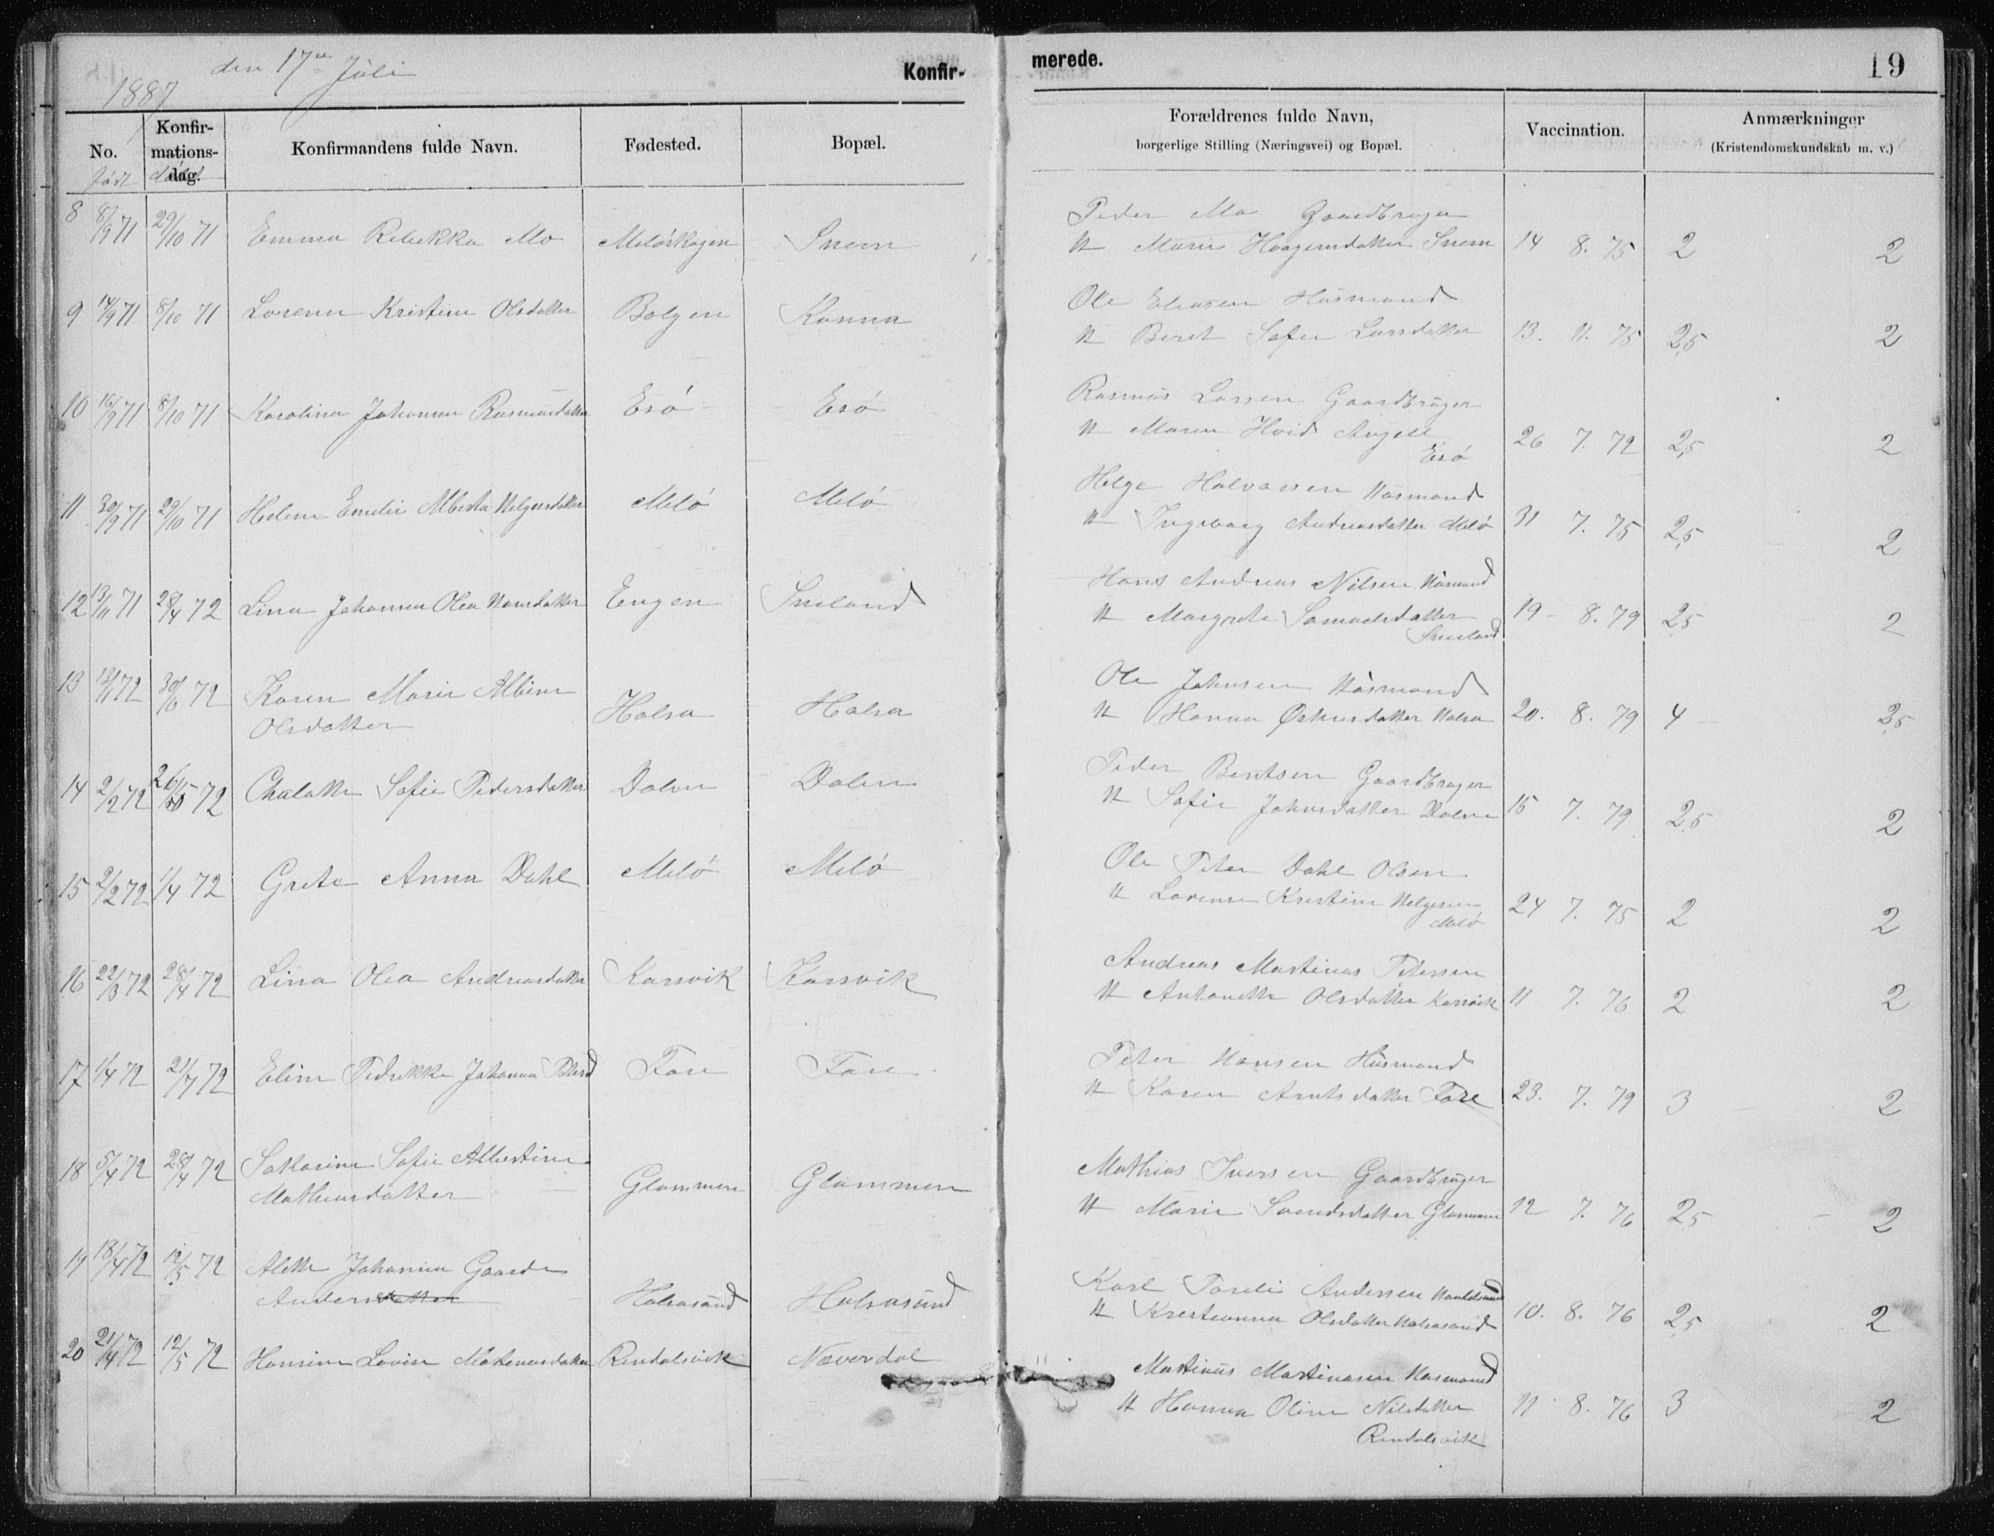 1887 den 17de Juli
Konfir-
merede.
19
No.
født
Konfir-
mations-
dag.
døbt
Konfirmandens fulde Navn.
Fødested.
Bopæl.
Forældrenes fulde Navn,
borgerlige Stilling (Næringsvei) og Bopæl.
Vaccination.
Anmærkninger
(Kristendomskundskab m. v.)
Peder Mo Gaardbruger
8 8/9 71 29/10 71 Emma Rebekka Mo Meløskagen
H Marie Haagensdatter 14 8. 75 2 2
Ole Eliasen Husmand
9 14/9 71 8/10 71 Lorense Kristine Olsdatter Bolgen Kunna
H Beret Sofie Larsdatter 13. 11. 75 2,5 2
Rasmus Larsen Gaardbruger
10 16/9 71 8/10 71 Karoline Johanna Rasmusdatter Esø Esø
H Maren Hvid Angell 26 7. 72 2,5 2
Esø
Helge Halvorsen Husmand
11 30/9 71 29/10 71 Helene Emelie Alberta Helgesdatter Melø Melø
H Ingeborg Andreasdatter Melø 31 7. 75 2,5 2
Hans Andreas Nilsen Husmand
12 13/11 71 28/4 72 Lina Johanna Olea Hansdatter Engen
H Margrete Samuelsdatter 19 - 8. 79 2,5 2
Ole Johnsen Husmand
13 72 30/6 72 Karen Marie Albine
Olsdatter Halsa Halsa
H Hanna Halsa 20. 8. 79 4 2,5
Peder Bentsen Gaardbruger
14 2/2 72 72 Sofie Pedersdatter Dalen Dalen
H Sofie Johnsdatter Dalen 15 7. 79 2,5 2
Ole Peter Dahl Olsen
15 2/2 72 1/4 72 Grete Anna Dahl Melø Melø
H Lorense Kristine Helgesen 24 7. 75 2 2
Melø
Andreas Martinus Petersen
16 22/3 72 28/4 72 Lina Olea Andreasdatter Karsvik Karsvik
H Antonette Olsdatter Karsvik 11 7. 76 2 2
Peter Hansen Husmand
17 1/4 72 21/7 72 Eline Pedrikke Johanna Fore Fore
H Karen Arntsdatter Fore 23. 7. 79 3 2
Mathias Iversen Gaardbruger
18 5/4 72 28/4 72 Sofie Albertine
Mathiasdatter Glommen Glommen
H Marie Svendsdatter Glommen 12 7. 76 2,5 2
19 18/4 72 12/5 72 Alette Johanna Gaarder
Andersdatter Halsasund Halsasund
Karl Andersen
H Kristianna Olsdatter Halsasund 10. 8. 76 2,5 2
20 21/4 72 12/5 72 Hansine Lovise Martinusdatter Rendalsvik Neverdal
Martinus Martinusen Husmand
H Hanna Oline Nilsdatter 11 8. 76 3 2
Rendalsvik